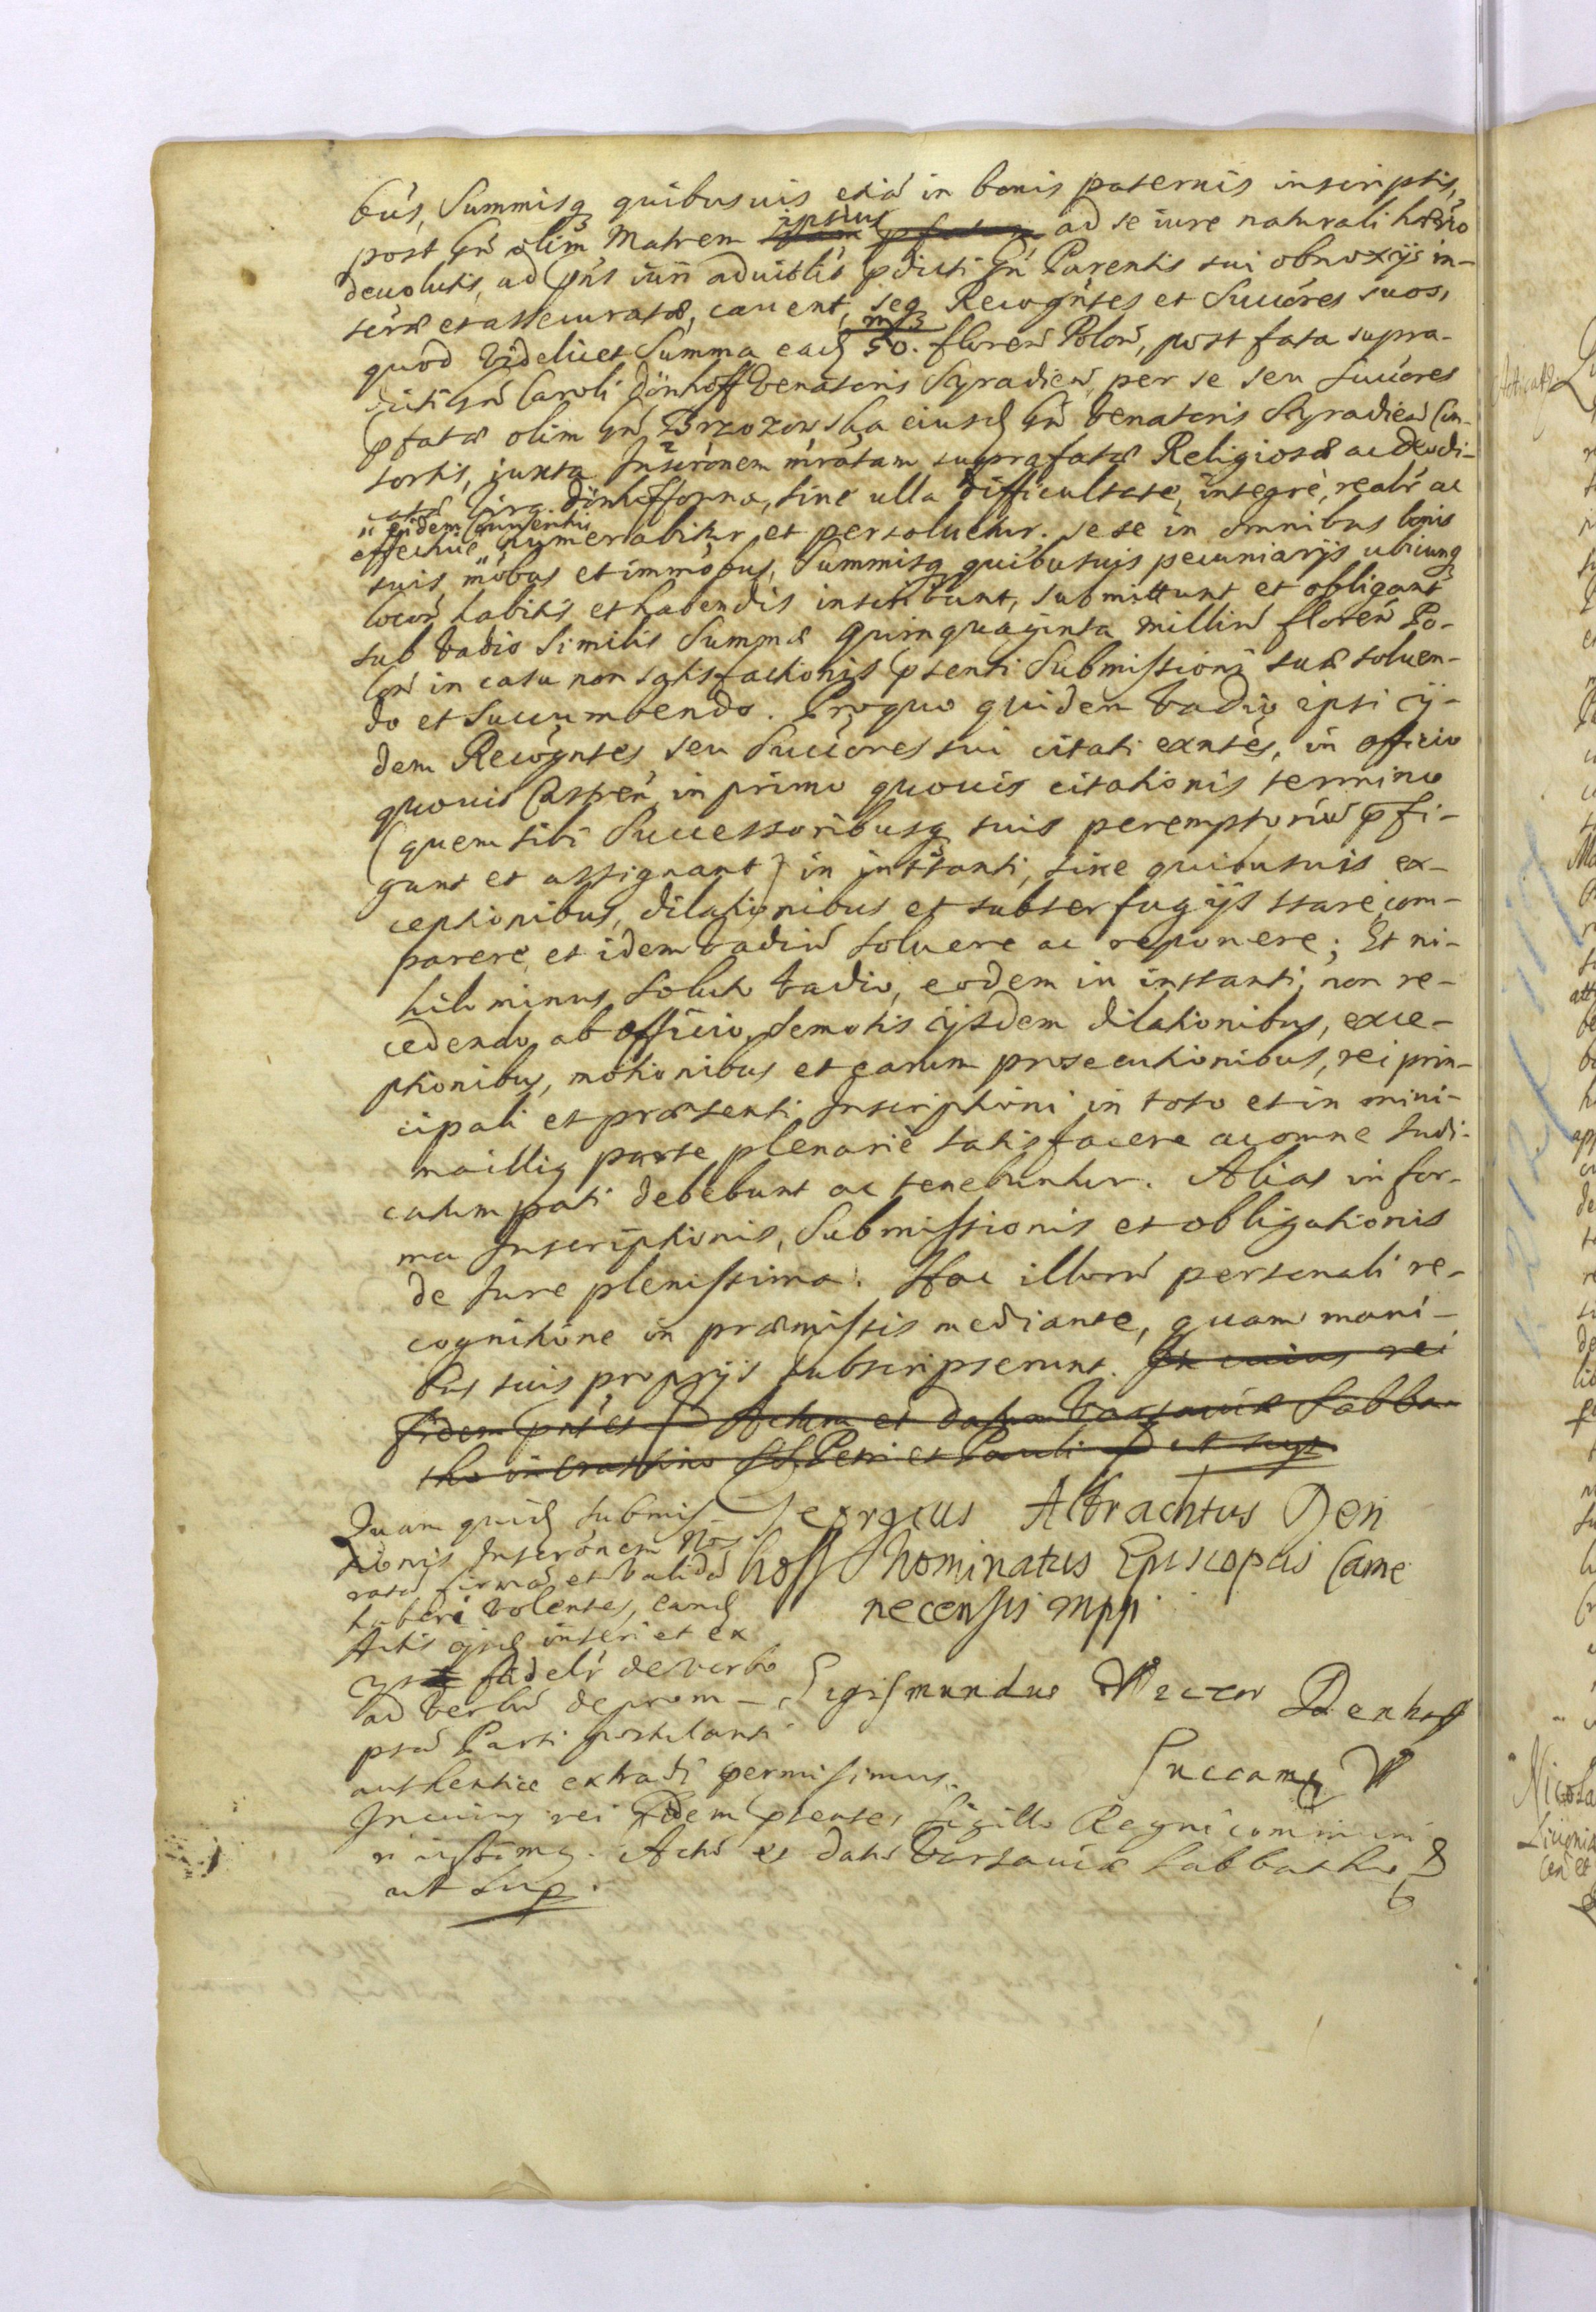 bus, Summisq quibusuis etiã in bonis paternis inscriptis,
post Gñ olim Matrem ipsius ad se iure naturali hærio
deuolutis, ad pñs iuri aduitłis pdicti Gñ Parentis sui obnoxijs in-
seræ et assecuratæ, cauent, seq Recogñtes et Succóres suos,
quod videlicet Summa ead m/50. floreñ Poloñ, post fata supra-
dicti Gñ Caroli Dönhoff Venatoris Syradieñ, per se seu Succóres
pfatæ olim Gñ Brzozowska eiusd Gñ Venatoris Syradieñ Con-
sortis, juxta Inscrónem mrátam suprafatæ Religiosæ ac Deodi-
catæ Virg. Dönhoffowna, sine ulla difficultate, integrè, realr ac
" eidem Conuentui
effectiuè " numerabitur et persoluetur. sese in omnibus bonis
suis, móbus et immóbus, Summisq quibusuis pecuniarijs ubicunq
locoŕ habitis et habendis inscribunt, submittunt et obligant
sub vadio Similis Summæ Quinquaginta milliũ floreñ Po-
loñ in casu non satisfactionis psenti Submissioni suæ soluen-
do et Succumbendo. Pro quo quidem Vadio ipsi ij-
dem Recogntes seu Succóres sui citati exntes, in officio
quouis Castreñ in primo quouis citationis termino
(quem sibi Successoribusq suis peremptoriũ pfi-
gunt et assignant) in instanti, sine quibusuis ex-
ceptionibus, dilationibus et subterfugijs stare, com-
parere, et idem Vadiũ soluere ac reponere; Et ni-
hilominus, soluto Vadio, eodem in instanti, non re-
cedendo ab officio, semotis ijsdem dilationibus, exce-
ptionibus, motionibus et earum prosecutionibus, rei prin-
cipali et præsenti Inscriptioni in toto et in mini-
ma illiq parte plenariè satisfacere ac omne Iudi-
catum pati debebunt ac tenebuntur. Alias in for-
ma Inscriptionis, Submissionis et obligationis
de Iure plenissima. Hac illorũ personali re-
cognitione in præmissis mediante, quam mani-
bus suis proprijs subscripserunt. In cuius rei
fidem pntes Actum et datum Varsauiæ Sabba-
tho in crastino SS. Petri et Pauli ut sup.
Quam quid submis-
sionis Inscrónem nos
ratã firmã et validã
haberi volentes, eand
Actis ijsd inseri et ex
fidelr de verbo
ad verbũ deprom-
ptã Parti postulanti
authentice extradi permisimus.
In cuius rei fidem psentes Sigillo Regni communi-
ri iussimq. Actũ et datũ Varsauiæ Sabbatho
ut sup.
Georgius Albrachtus Den
hoff Nominatus Episcopus Came
necensis mpp
Sigismundus Wictor Denhoff
Succam W